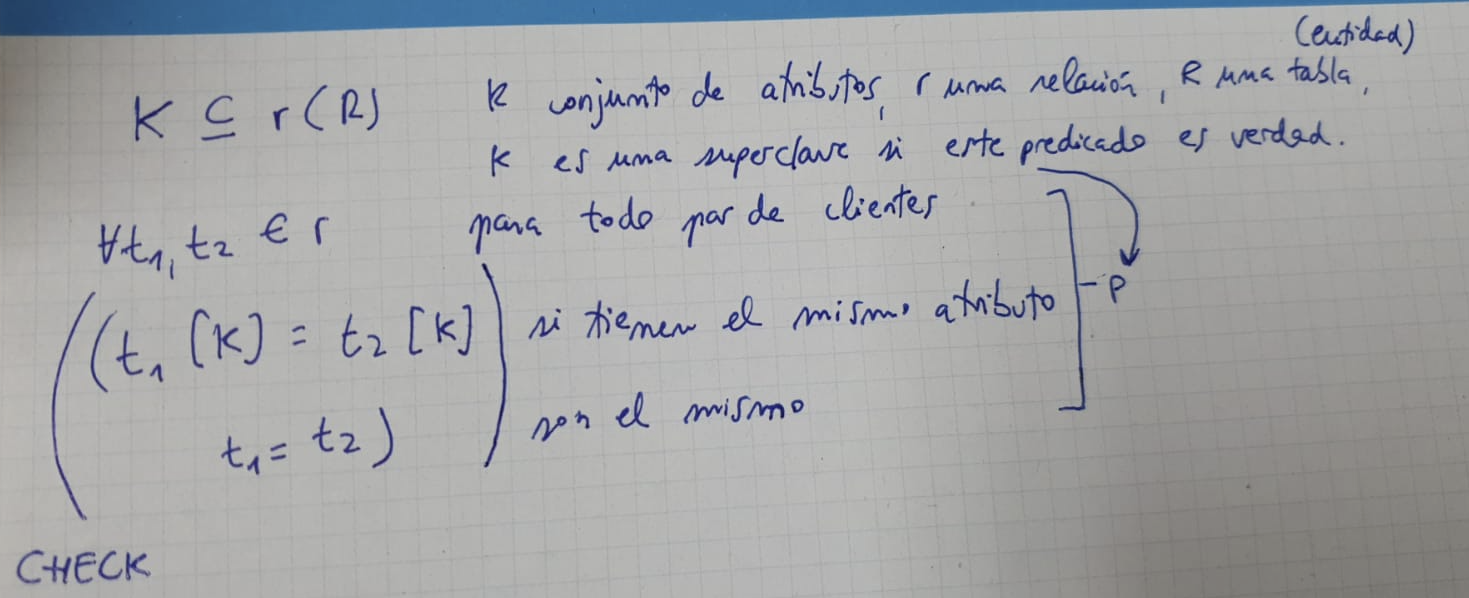 (entidad)
K ⊆ r(R) K conjunto de atributos, r una relación, R una tabla,
K es una superclave si este predicado es verdad.
∀t₁, t₂ ∈ r para todo par de clientes
((t₁[K] = t₂[K] si tienen el mismo atributo P
t₁ = t₂) ) son el mismo
CHECK